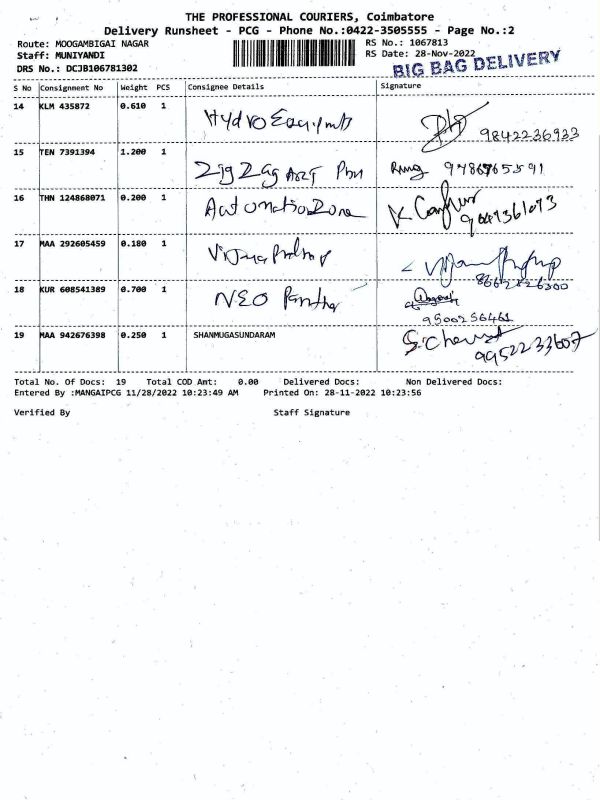 THE PROFESSIONAL COURIERS, Coimbatore
Delivery Runsheet - PCG - Phone No.:0422-3505555 - Page No.:2
Route: MOOGAMBIGAI NAGAR
RS No.: 1067813
Staff: MUNIYANDI
RS Date: 28-Nov-2022
DRS No.: DCJB106781302
BIG BAG DELIVERY
S No Consignment No Weight PCS Consignee Details Signature
14 KLM 435872 0.610 1 Hydro
9842236933
15 TEN 7391394 1.200 1 Zig Zag Art
16 THN 124868071 0.200 1 Automation Zone
17 MAA 292605459 0.180 1
18 KUR 608541389 0.700 1 NEO Panther
9500256461
19 MAA 942676398 0.250 1 SHANMUGASUNDARAM
9952233607
Total No. Of Docs: 19 Total COD Amt: 0.00 Delivered Docs: Non Delivered Docs:
Entered By :MANGAIPCG 11/28/2022 10:23:49 AM Printed On: 28-11-2022 10:23:56
Verified By Staff Signature